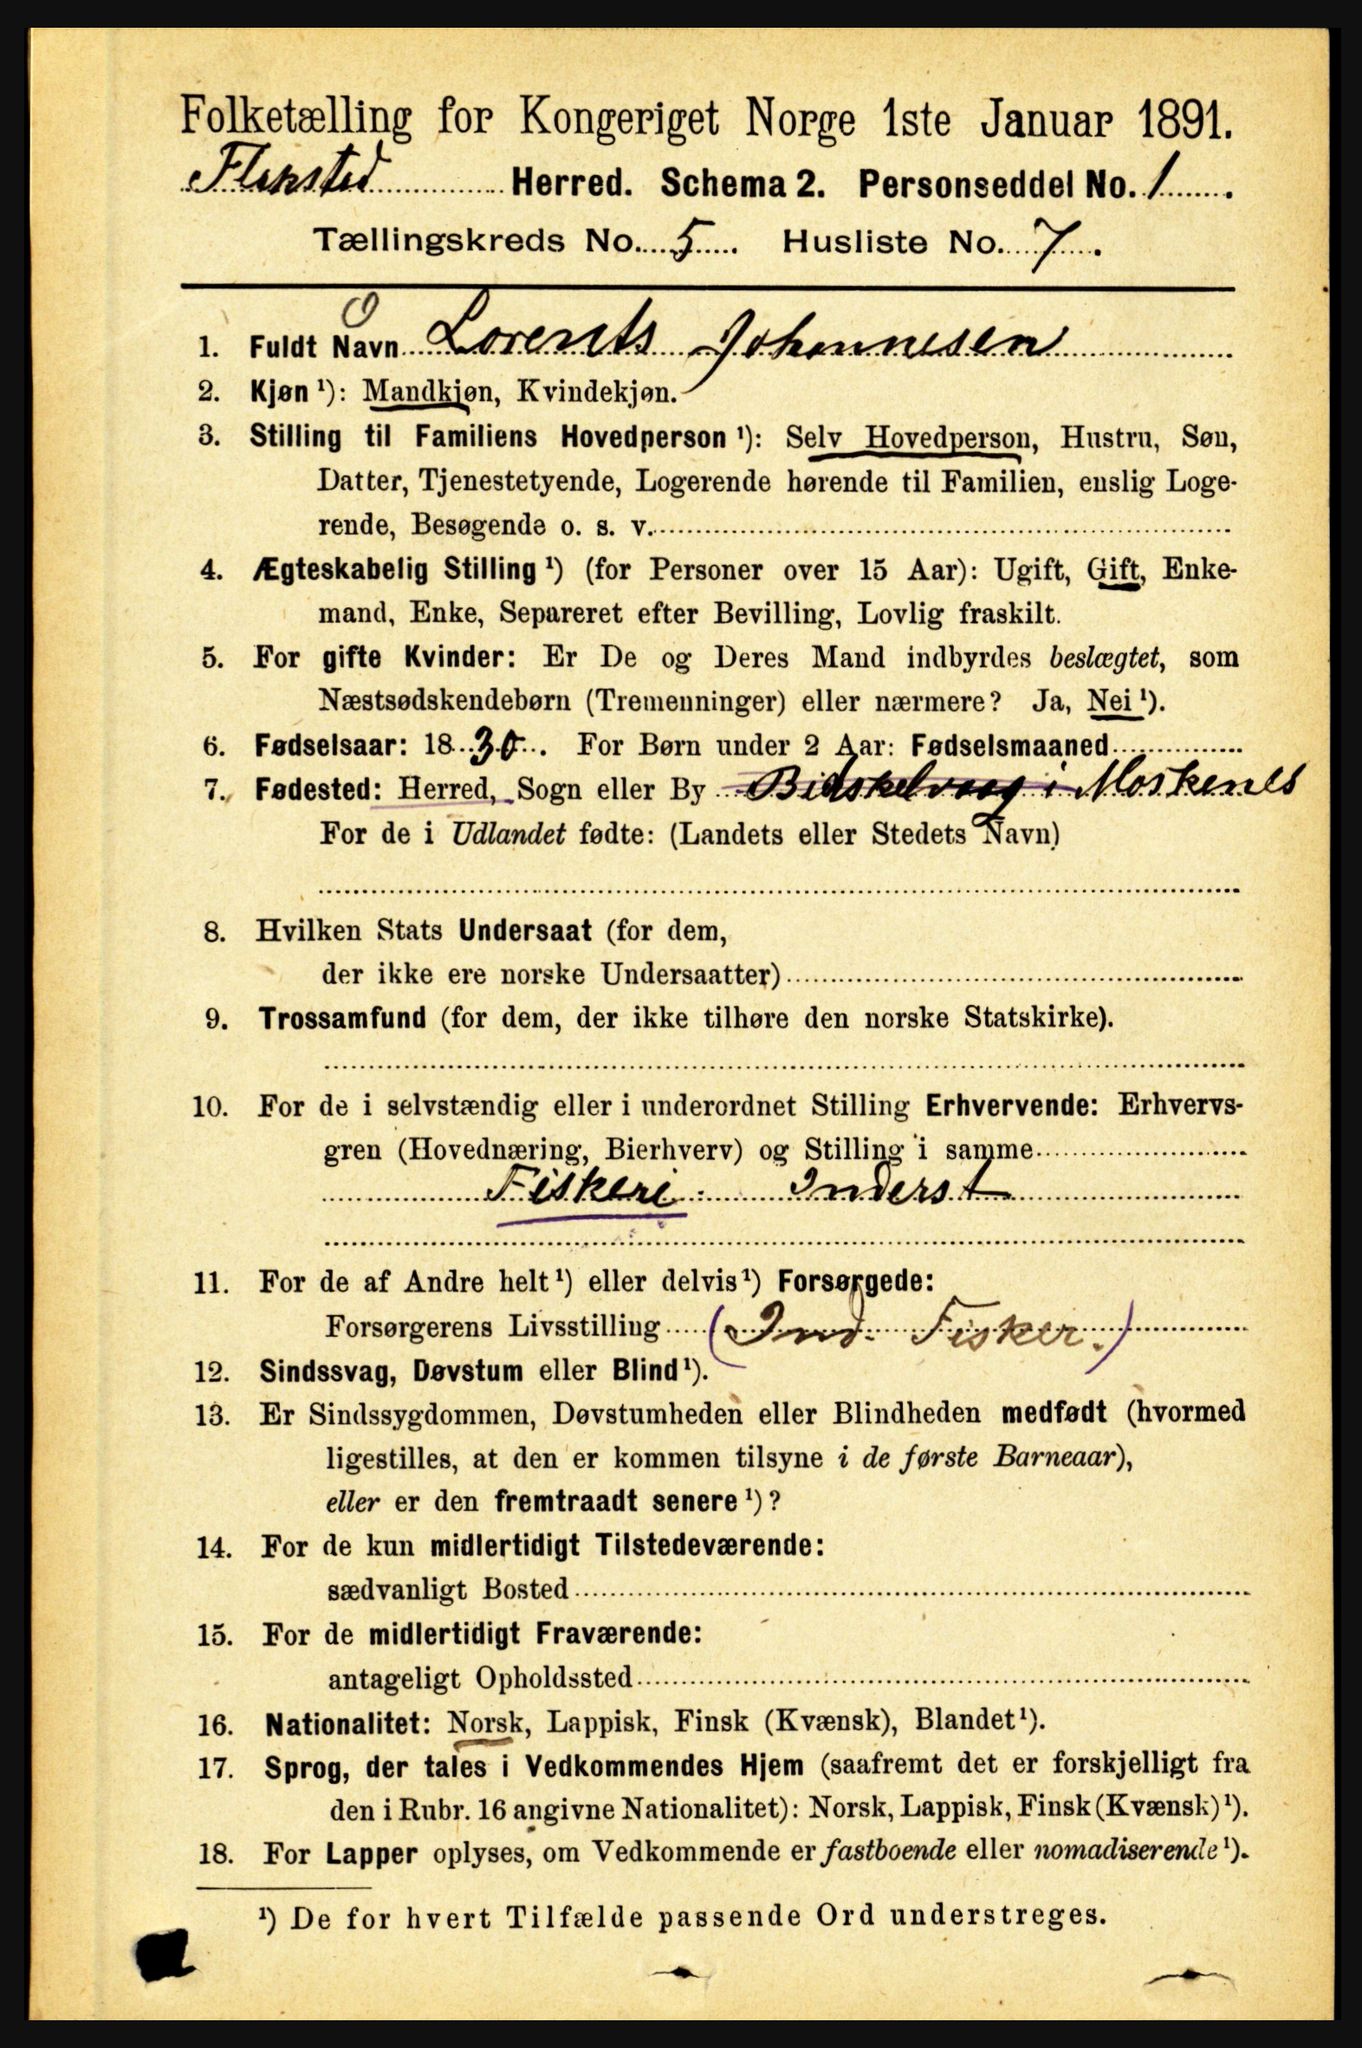 Folketælling for Kongeriget Norge 1ste Januar 1891.
Flaksted Herred. Schema 2. Personseddel No. 1.
Tællingskreds No. 5. Husliste No. 7.
1. Fuldt Navn Lorents Johannesen
2. Kjøn ¹): Mandkjøn, Kvindekjøn.
3. Stilling til Familiens Hovedperson ¹): Selv Hovedperson, Hustru, Søn,
Datter, Tjenestetyende, Logerende hørende til Familien, enslig Loge-
rende, Besøgende o. s. v.
4. Ægteskabelig Stilling ¹) (for Personer over 15 Aar): Ugift, Gift, Enke-
mand, Enke, Separeret efter Bevilling, Lovlig fraskilt.
5. For gifte Kvinder: Er De og Deres Mand indbyrdes beslægtet, som
Næstsødskendebørn (Tremenninger) eller nærmere? Ja, Nei ¹).
6. Fødselsaar: 1830. For Børn under 2 Aar: Fødselsmaaned
7. Fødested: Herred, Sogn eller By i Moskenes
For de i Udlandet fødte: (Landets eller Stedets Navn)
8. Hvilken Stats Undersaat (for dem,
der ikke ere norske Undersaatter)
9. Trossamfund (for dem, der ikke tilhøre den norske Statskirke).
10. For de i selvstændig eller i underordnet Stilling Erhvervende: Erhvervs-
gren (Hovednæring, Bierhverv) og Stilling i samme
Fiskeri. Inderst
11. For de af Andre helt ¹) eller delvis ¹) Forsørgede:
Forsørgerens Livsstilling (Ind. Fisker.)
12. Sindssvag, Døvstum eller Blind ¹).
13. Er Sindssygdommen, Døvstumheden eller Blindheden medfødt (hvormed
ligestilles, at den er kommen tilsyne i de første Barneaar),
eller er den fremtraadt senere ¹)?
14. For de kun midlertidigt Tilstedeværende:
sædvanligt Bosted
15. For de midlertidigt Fraværende:
antageligt Opholdssted
16. Nationalitet: Norsk, Lappisk, Finsk (Kvænsk), Blandet ¹).
17. Sprog, der tales i Vedkommendes Hjem (saafremt det er forskjelligt fra
den i Rubr. 16 angivne Nationalitet): Norsk, Lappisk, Finsk (Kvænsk) ¹).
18. For Lapper oplyses, om Vedkommende er fastboende eller nomadiserende ¹).
¹) De for hvert Tilfælde passende Ord understreges.